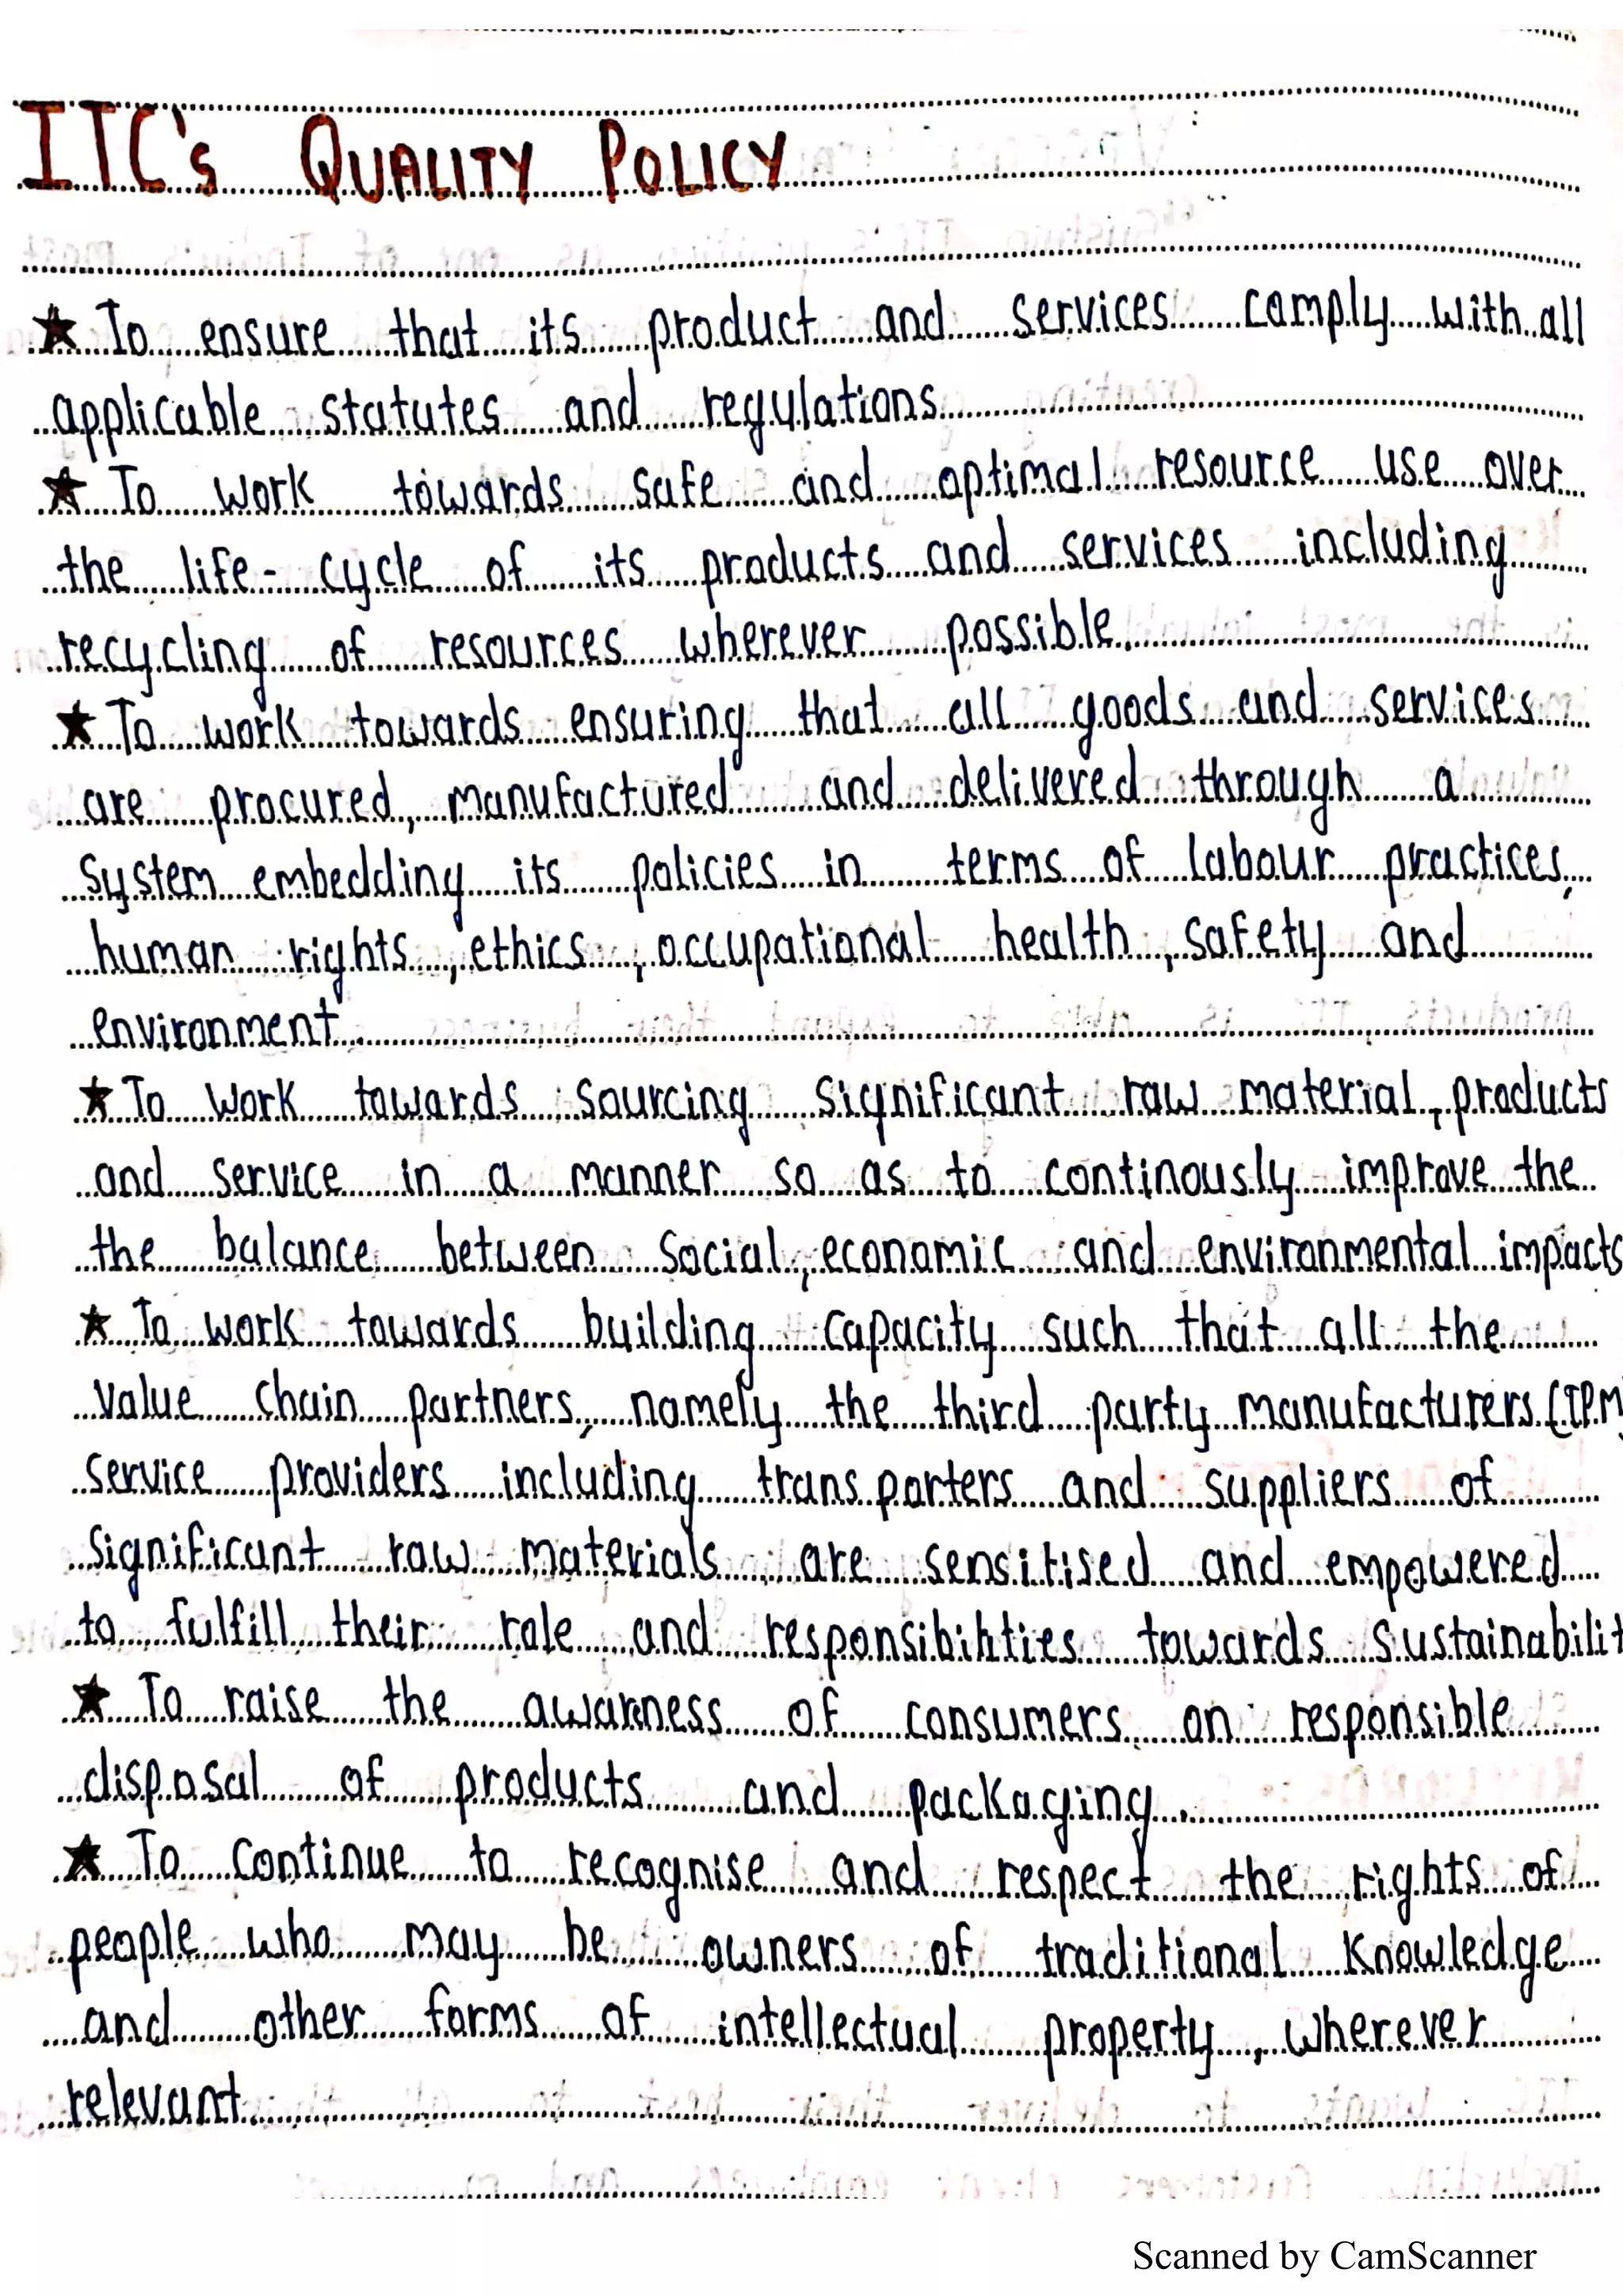 ITC's QUALITY POLICY
★ To ensure that its product and services comply with all
applicable statutes and regulations.
★ To work towards safe and optimal resource use over
the life-cycle of its products and services including
recycling of resources wherever possible.
★ To work towards ensuring that all goods and services
are procured, manufactured and delivered through a
System embedding its policies in terms of labour practices,
human rights, ethics, occupational health, safety and
environment.
★ To work towards sourcing significant raw material, products
and service in a manner so as to continously improve the
the balance between social, economic and environmental impacts
★ To work towards building capacity such that all the
value chain partners, namely the third party manufacturers (TPM)
service providers including transporters and suppliers of
significant raw materials are sensitised and empowered
to fulfill their role and responsibilities towards sustainabilit
★ To raise the awarness of consumers on responsible
disposal of products and packaging.
★ To continue to recognise and respect the rights of
people who may be owners of traditional knowledge
and other forms of intellectual property, wherever
relevant.
Scanned by CamScanner